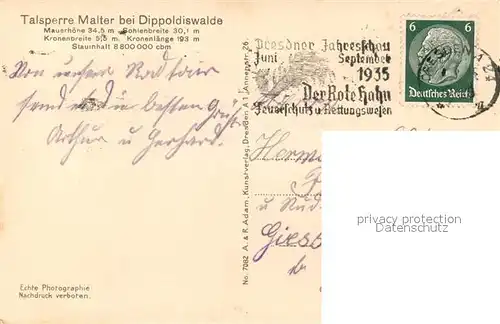 Talsperre Malter bei Dippoldiswalde
Mauerhöhe 34,5 m Sohlenbreite 30,1 m
Kronenbreite 5,5 m Kronenlänge 193 m
Stauinhalt 8800000 cbm
Von unserer Radtour
senden die besten Grüße
Arthur u Gerhard.
Echte Photographie
Nachdruck verboten.
No. 7982 A. & R. Adam, Kunstverlag, Dresden A 1, Annenstr. 26.
Dresdner Jahresschau
Juni September
1935
Der Rote Hahn
Feuerschutz u Rettungswesen
6 6
Deutsches Reich
DRESDEN A
u
privacy protection